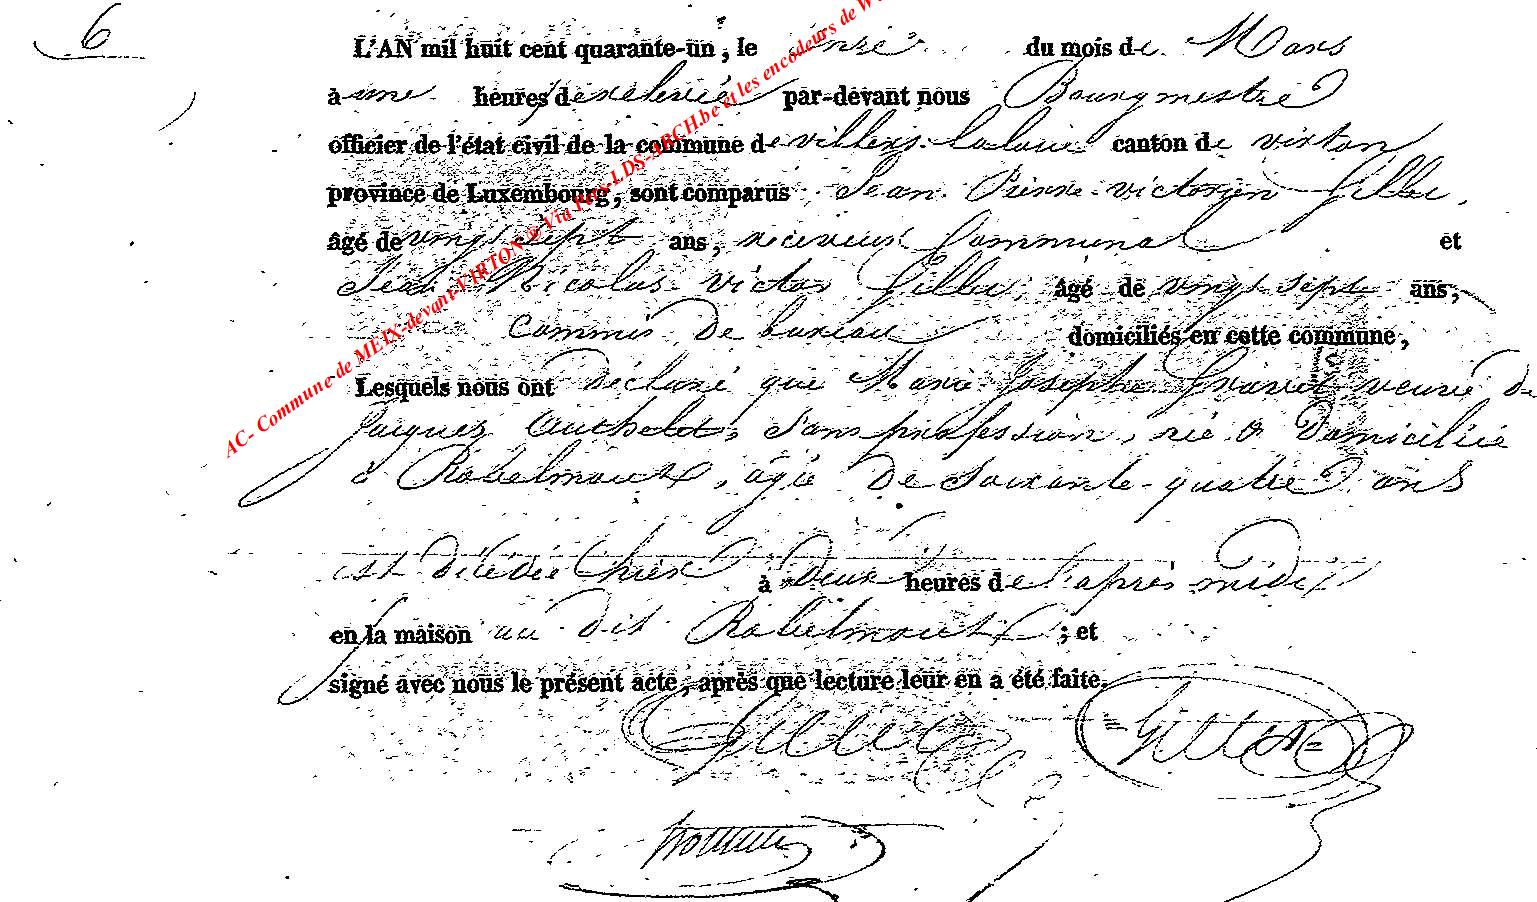 6
L'AN mil huit cent quarante-un, le onze du mois de Mars
à une heures de relevée par-devant nous Bourgmestre
officier de l'état civil de la commune de villers-laloue canton de virton
province de Luxembourg, sont comparus Jean Pierre victorien Gillet,
âgé de vingt sept ans, receveur Communal et
Jean Nicolas victor Gillet, âgé de vingt sept ans,
Commis de bureau domiciliés en cette commune,
Lesquels nous ont déclaré que Marie Josephe Gravet veuve de
Jacques, Sans profession, née & Domiciliée
à Robelmont, agée de Soixante-quatre ans
est décédée hier à deux heures de l'après midi
en la maison au dit Robelmont; et
signé avec nous le présent acte, après que lecture leur en a été faite.
Gillet Gillet
AC- Commune de MEIX-devant-VIRTON @ Via Lux-LDS-ARCH.be et les encodeurs de